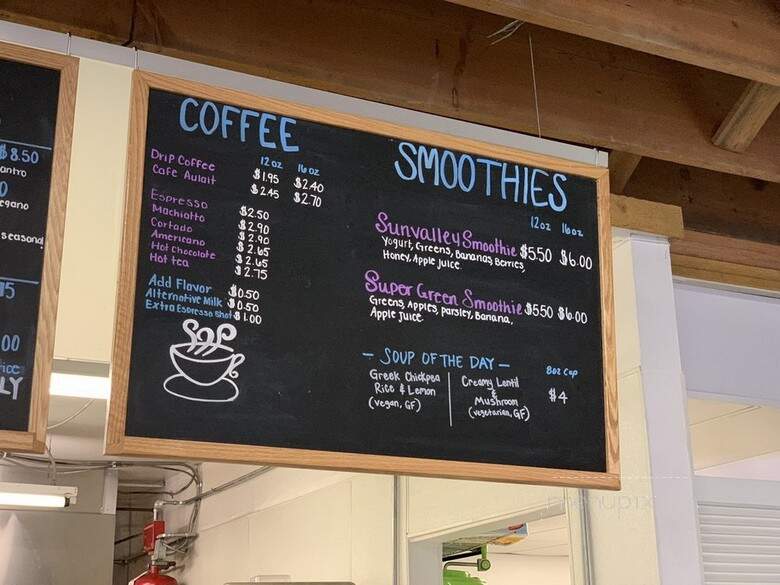 $8.50
antro
egano
seasoned
75
.00
LY
COFFEE
12 oz 16 oz
Drip Coffee $1.95 $2.40
Cafe Aulait $2.45 $2.70
Espresso $2.50
Machiatto $2.90
Cortado $2.90
Americano $2.65
Hot Chocolate $2.65
Hot tea $2.75
Add Flavor $0.50
Alternative Milk $0.50
Extra Espresso Shot $1.00
SMOOTHIES
12oz 16oz
Sunvalley Smoothie $5.50 $6.00
Yogurt, Greens, Bananas, Berries,
Honey, Apple juice.
Super Green Smoothie $5.50 $6.00
Greens, Apples, parsley, Banana,
Apple juice.
- SOUP OF THE DAY -
8oz Cup
$4
Greek Chickpea
Rice & Lemon
(vegan, GF)
Creamy Lentil
&
Mushroom
(vegetarian, GF)
menupix